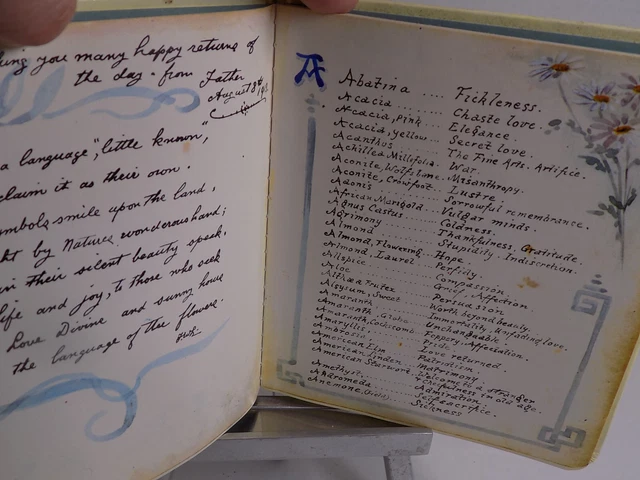 ing you many happy returns of
the day. from Father
August 8th
a language, "little known",
claim it as their own.
ymbols smile upon the land,
ht by Natures wonderous hand;
in their silent beauty speak,
life and joy, to those who seek
Love Divine and sunny hours
the language of the flowers.
A
Abatina .... Fickleness.
Acacia ........ Chaste love.
Acacia, pink .... Elegance.
Acacia, yellow .... Secret love.
Acanthus .... The Fine Arts. Artifice.
Achillea Millifolia. War.
Aconite, Wolfsbane .. Misanthropy.
Aconite, Crowfoot .. Lustre.
Adonis .... Sorrowful remembrance.
African Marigold .. Vulgar minds.
Agnus Castus .. Coldness.
Agrimony .... Thankfulness, Gratitude.
Almond .... Stupidity. Indiscretion.
Almond, Flowering .. Hope
Almond, Laurel .. Perfidy.
Allspice .... Compassion.
Aloe .... Grief, Affection.
Althea Frutex .. Persuasion.
Alyssum, Sweet .. Worth beyond beauty.
Amaranth .... Immortality. Unfading love.
Amaranth, Globe .. Unchangeable.
Amaranth, Cockscomb .. Foppery. Affectation.
Amaryllis .... Pride.
Ambrosia .... Love returned.
American Elm .. Patriotism.
American Linden .. Matrimony.
American Starwort .. Welcome to a stranger
Cheerfulness in old age.
Amethyst .... Admiration.
Andromeda .... Self sacrifice.
Anemone (Field) .. Sickness